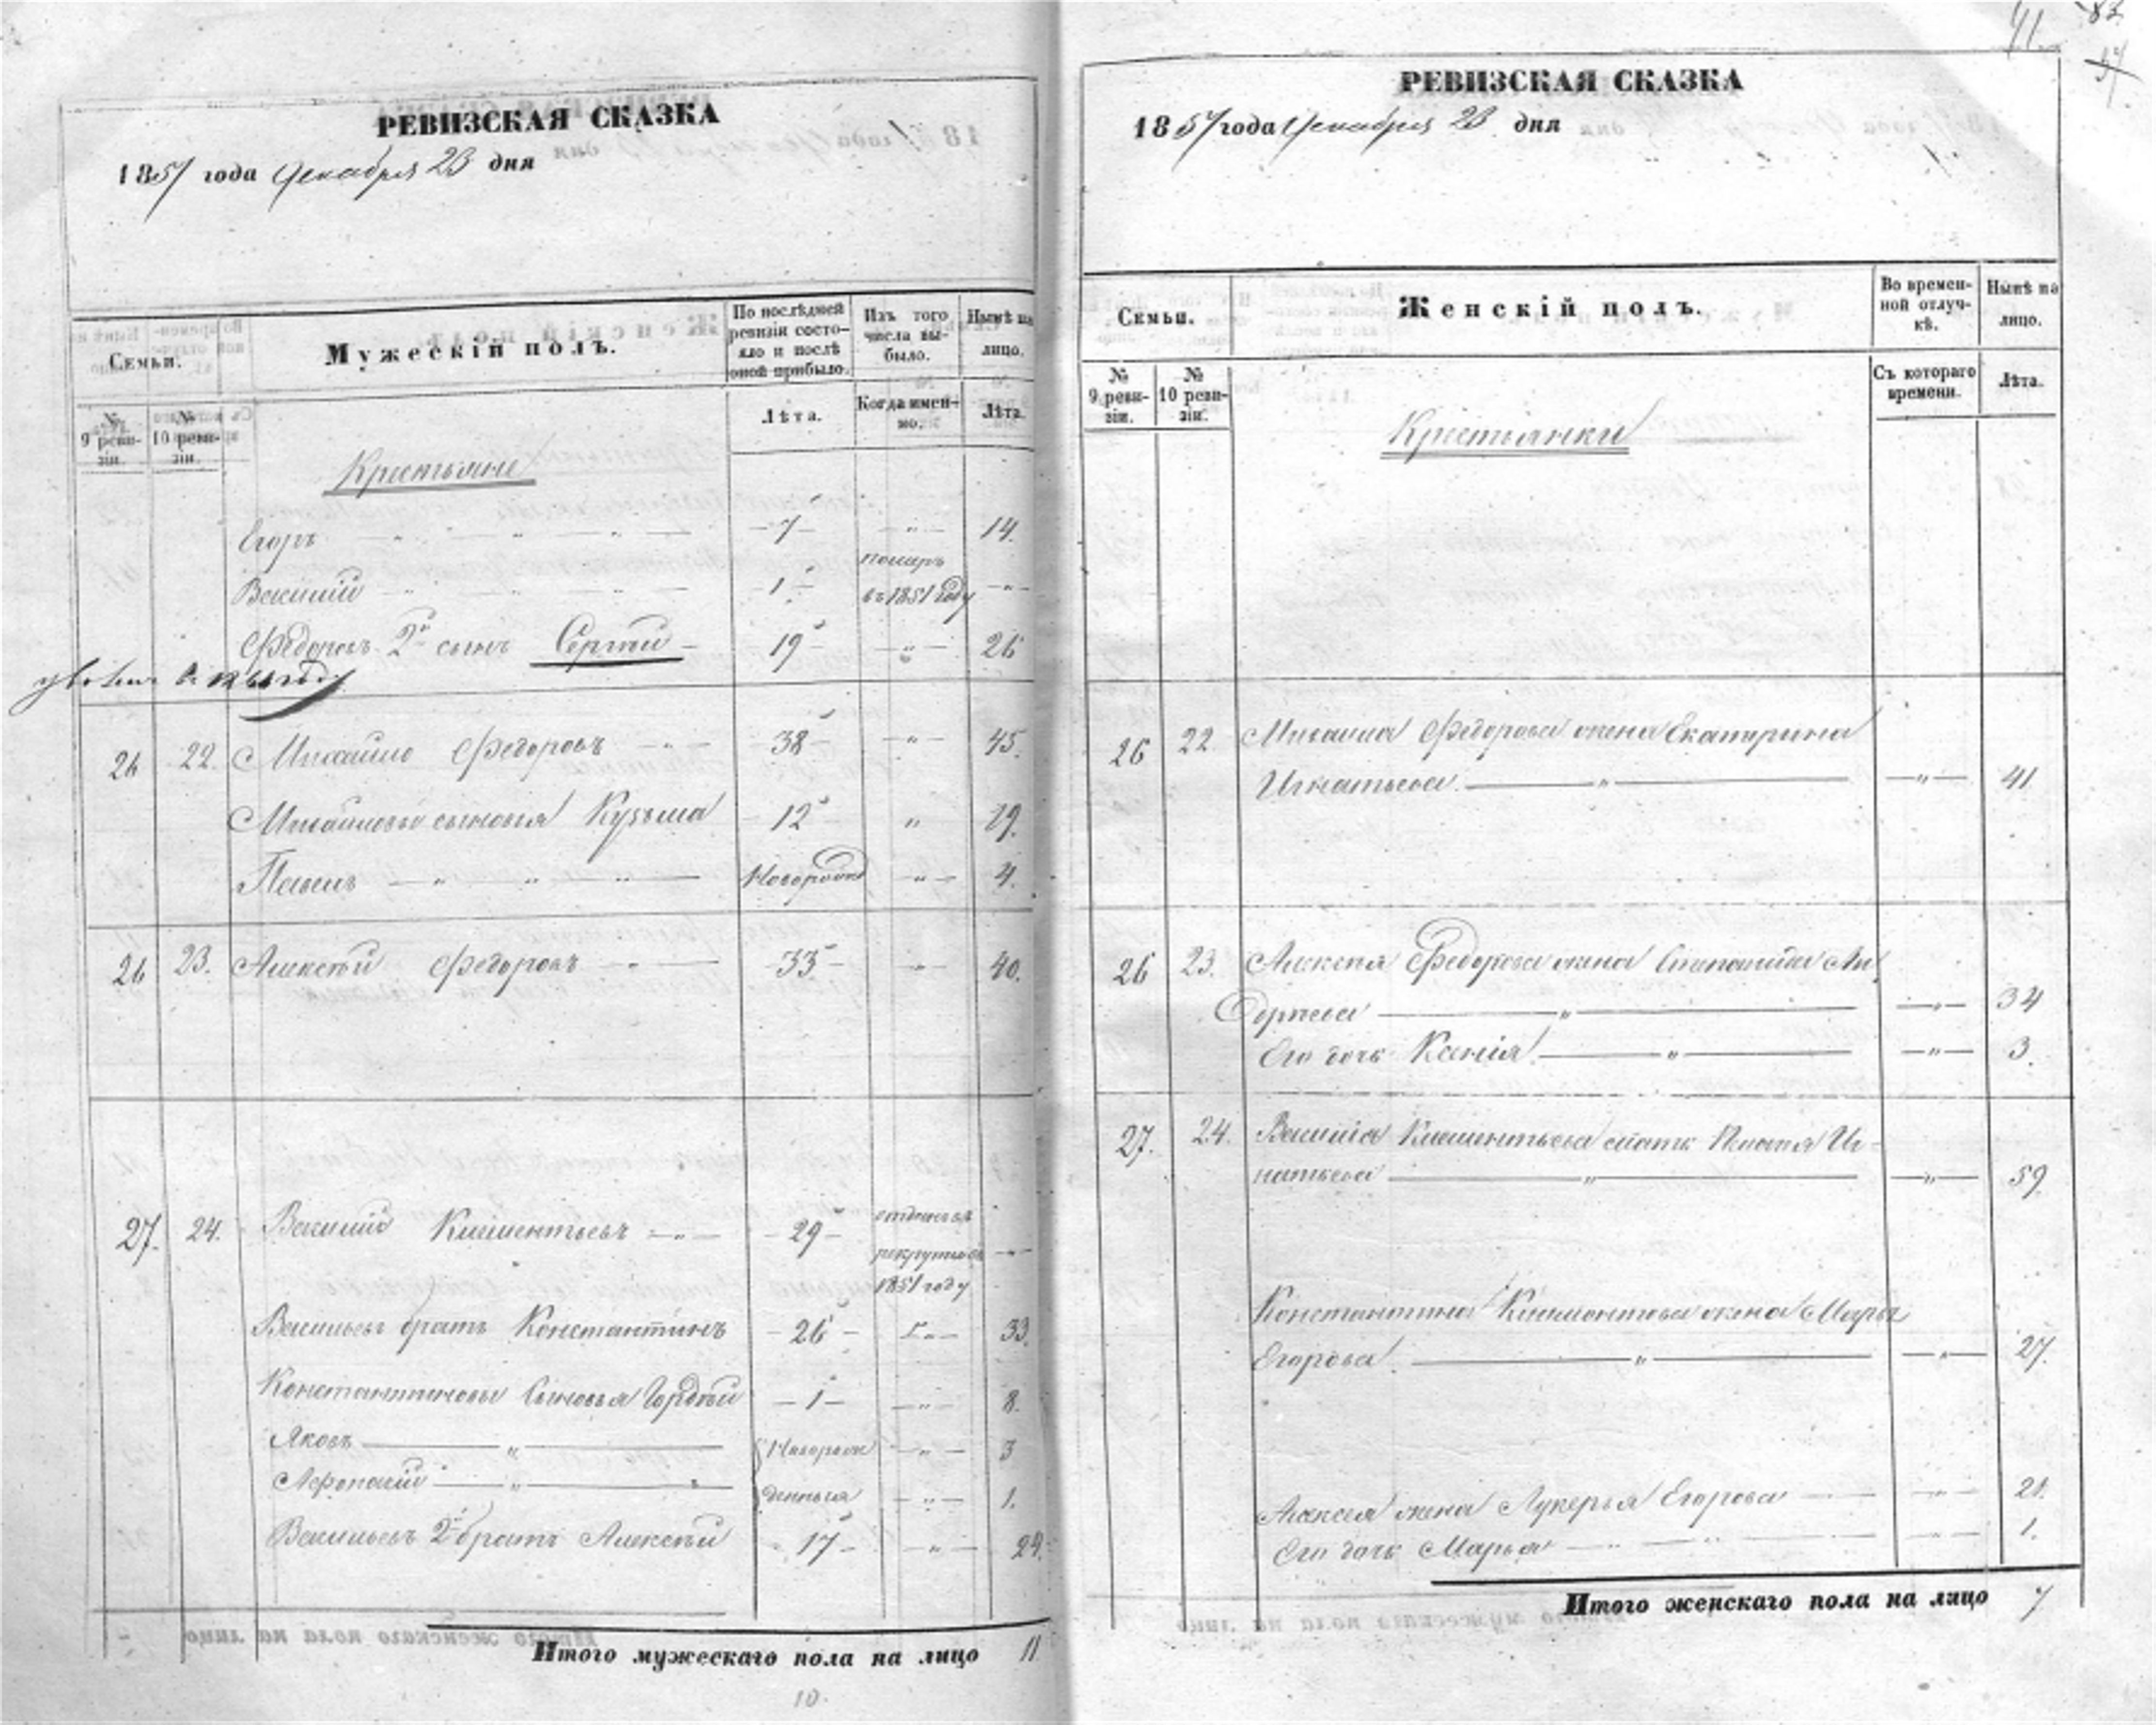 РЕВИЗСКАЯ СКАЗКА
1857 года Декабря 23 дня
Семьи.
Мужескій полъ.
По послѣдней ревизіи состо-
яло и послѣ
оной прибыло.
Изъ того
числа вы-
было.
Нынѣ на
лицо.
№
9 реви-
зіи.
№
10 реви-
зіи.
Лѣта.
Когда имен-
но.
Лѣта.
Крестьяне
Егоръ — " — " — " — 7 — " — 14.
Василій — " — " — " — 1 — померъ въ 1851 году — " —
Федоровъ 2й сынъ Сергѣй — 19 — " — 26
26 22. Михайло Федоровъ — " — 38 — " — 45.
Михайловы сыновья Кузьма 12 " 19.
Павелъ — " — " — " — Новорожд — " — 4.
26 23. Алексѣй Федоровъ — " — 33 — " — 40.
27. 24. Василій Климентьевъ — " — 29 — отданъ въ
рекруты въ — " —
1851 году
Васильевъ братъ Константинъ — 26 — " — 33.
Константиновы Сыновья Гордѣй — 1 — " — 8.
Яковъ — " — Новорож — " — 3
— " — " денныя — " — 1.
Васильевъ 2й братъ Алексѣй — 17 — " — 24.
Итого мужескаго пола на лицо 11.
10.
41.
83
РЕВИЗСКАЯ СКАЗКА
1857 года Декабря 23 дня
Семьи.
Женскій полъ.
Во времен-
ной отлуч-
кѣ.
Нынѣ на
лицо.
№
9 реви-
зіи.
№
10 реви-
зіи.
Съ котораго
времени.
Лѣта.
Крестьянки
26 22. Михайла Федорова жена Екатерина
Игнатьева — " — " — 41
26 23. Алексея Федорова жена Степанида Си
дорнева — " — " — 34
Его дочь Ксенія — " — " — 3.
27. 24. Василія Климентьева мать Иг-
натьева — " — " — 59.
Константина Климентьева жена Марья
Егорова — " — " — 27.
Алексея жена Лукерья Егорова — " — 21.
Его дочь Марья — " — " — 1.
Итого женскаго пола на лицо 7